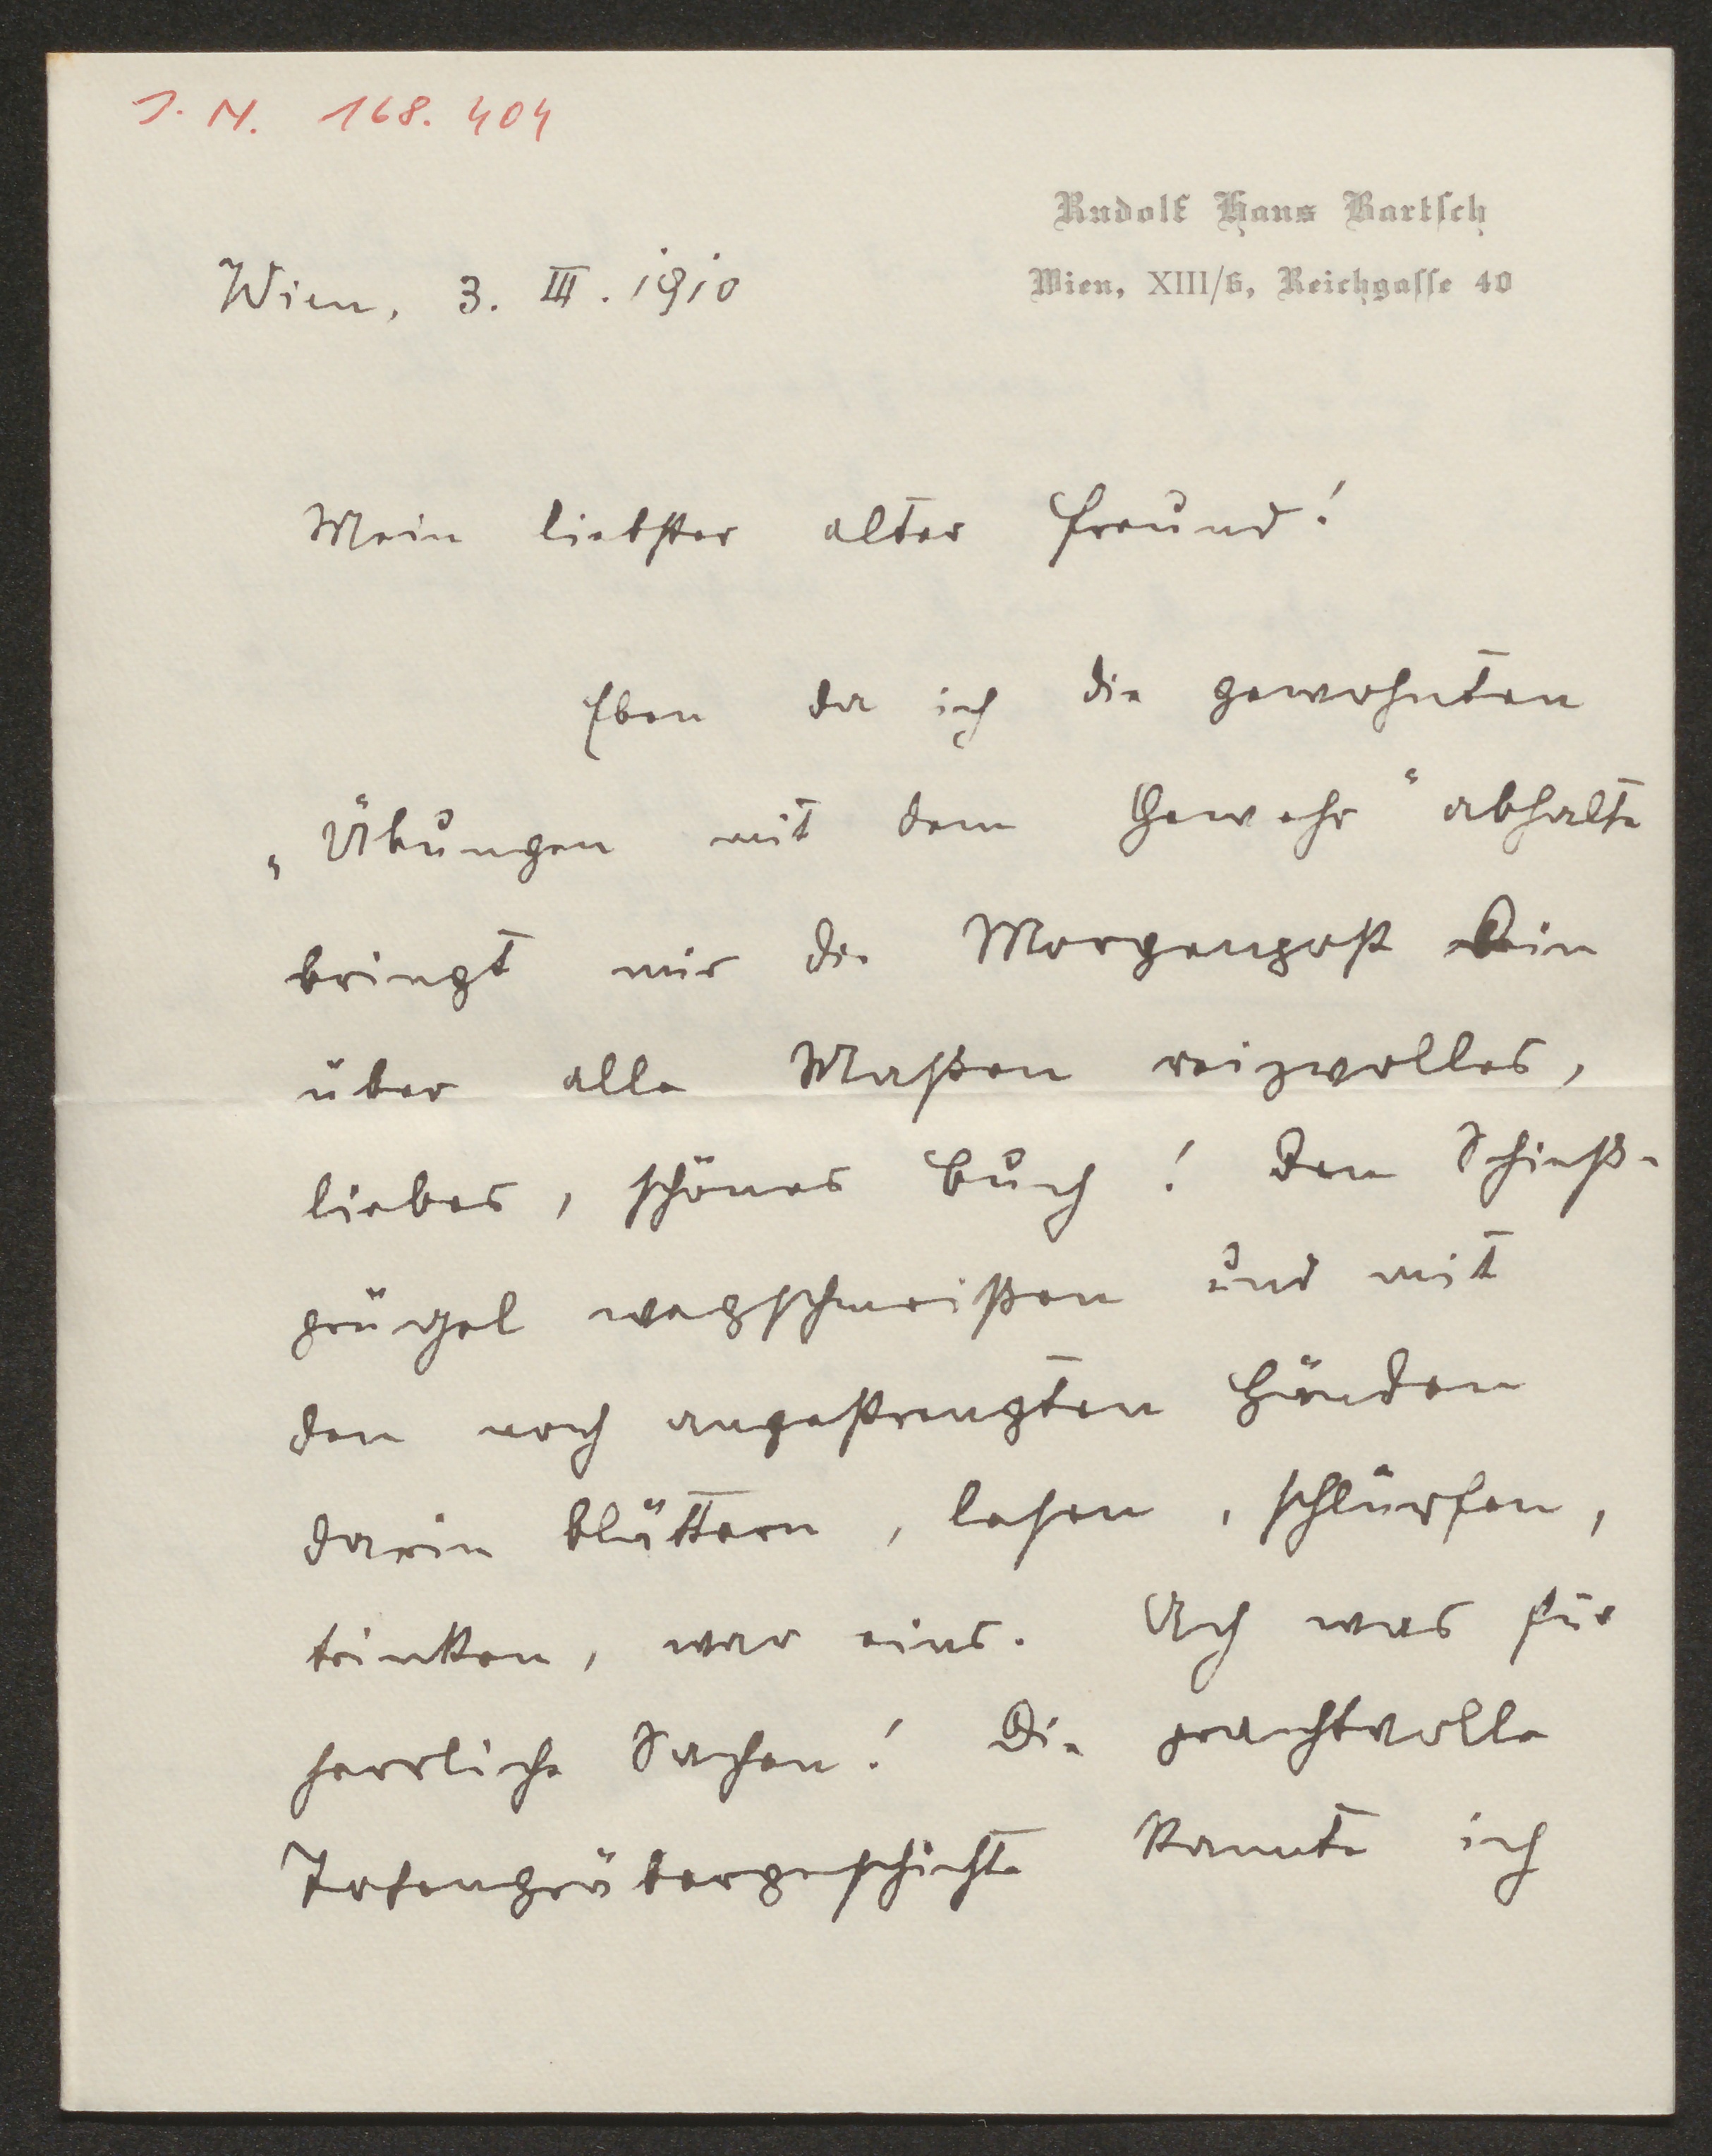 J. N. 168.404
Rudolf Hans Bartsch
Wien, XIII/6, Reichgasse 40
Wien, 3. III. 1910
Mein liebster alter Freund!
Eben da ich die gewohnten
„Übungen mit dem Gewehr“ abhalte
bringt mir die Morgenpost Dein
über alle Maßen reizvolles,
liebes, schönes Buch! Den Schieß-
prügel wegschmeißen und mit
den noch angestrengten Händen
darin blättern, lesen, schlürfen,
trinken, war eins. Ach was für
herrliche Sachen! Die prachtvolle
Totengräbergeschichte kannte ich